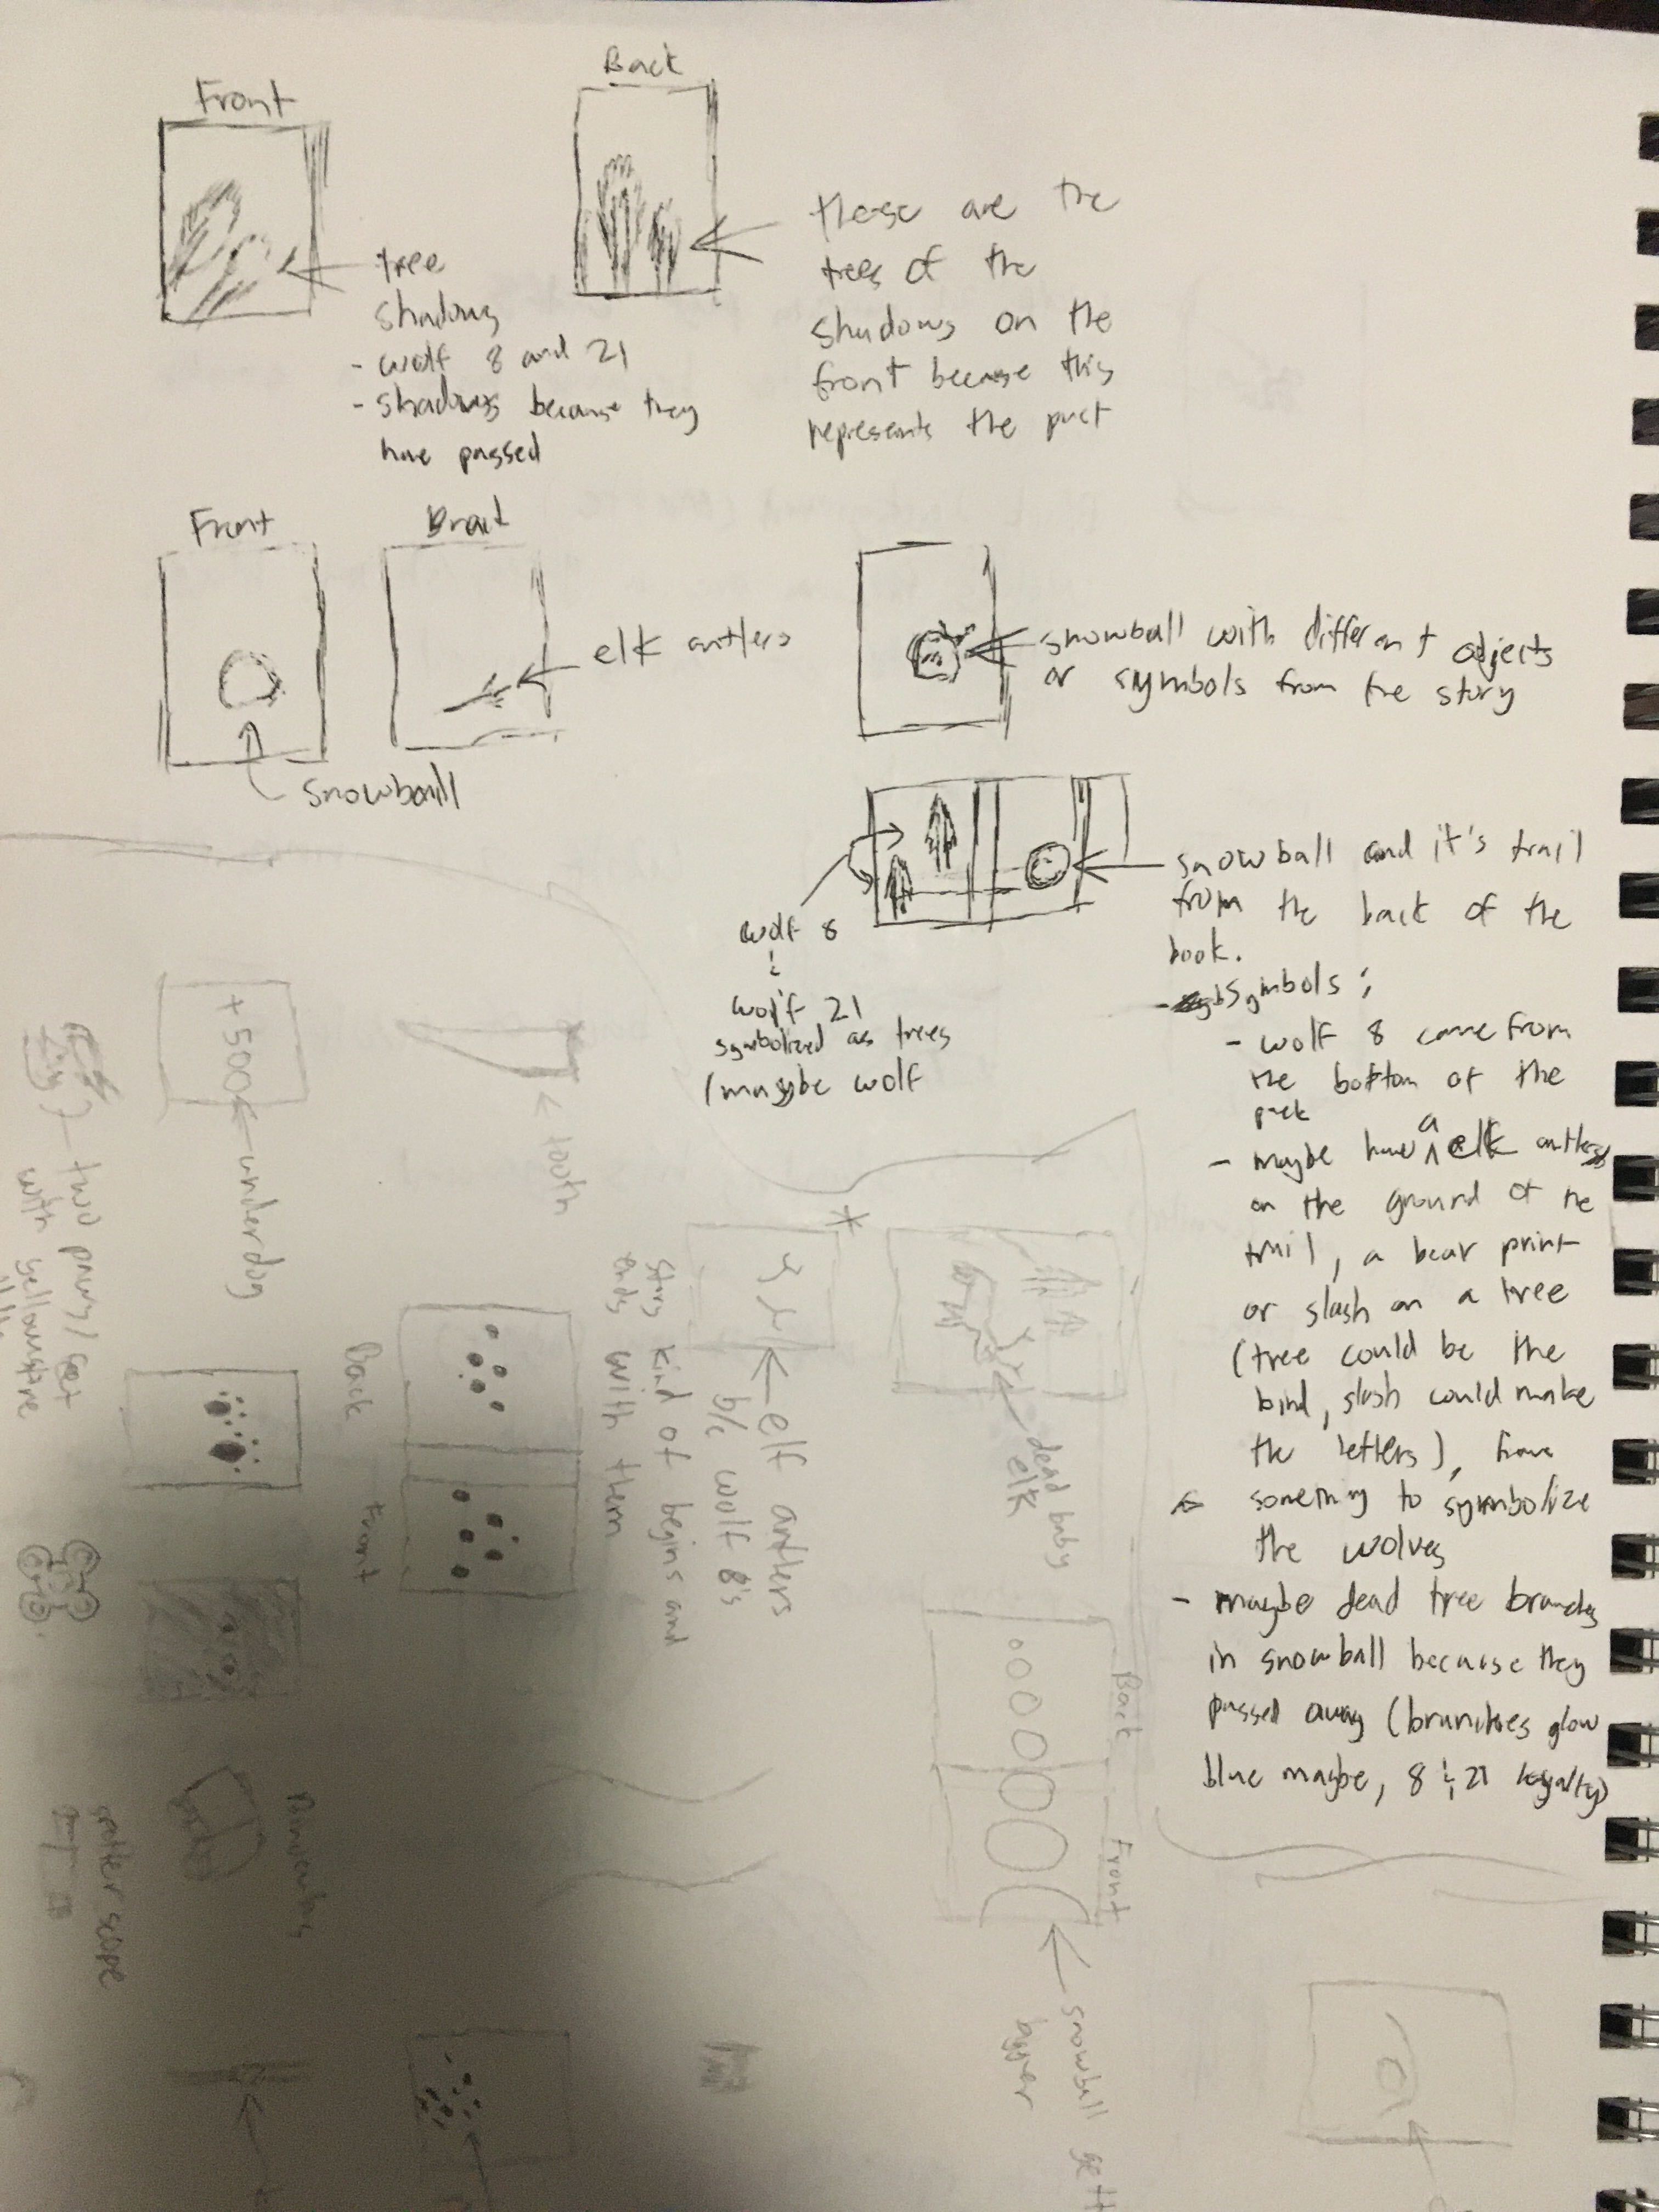 Front
Back
tree
shadows
- wolf 8 and 21
- shadows because they
have passed
these are the
trees of the
shadows on the
front because this
represents the past
Front
Back
elk antlers
snowball
snowball with different objects
or symbols from the story
snowball and it's trail
from the back of the
book.
wolf 8
&
wolf 21
symbolized as trees
(maybe wolf
- symbols:
- wolf 8 came from
the bottom of the
pack
- maybe have a elk antlers
on the ground of the
trail, a bear print
or slash on a tree
(tree could be the
bind, slash could make
the letters), have
something to symbolize
the wolves
- maybe dead tree branches
in snowball because they
passed away (branches glow
blue maybe, 8 & 21 loyalty)
+500
underdog
tooth
two paws/
with yellowstone
elf antlers
b/c wolf 8's
story kind of begins and
ends with them
dead baby
elk
Back
Front
Back
Front
snowball gett
bigger
spotter scope